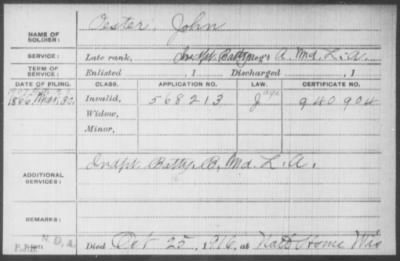 NAME OF SOLDIER: Oester, John
SERVICE: Late rank, Indpt. Batty Reg't A. Md. L. A.
TERM OF SERVICE: Enlisted , 1 Discharged , 1
DATE OF FILING. CLASS. APPLICATION NO. LAW. CERTIFICATE NO.
1886, Mar. 30. Invalid, 568213 940904
Widow,
Minor,
ADDITIONAL SERVICES: Indpt Batty. B. Md. L. A.
REMARKS:
Died Oct 25, 1916, at Natl Home Wis